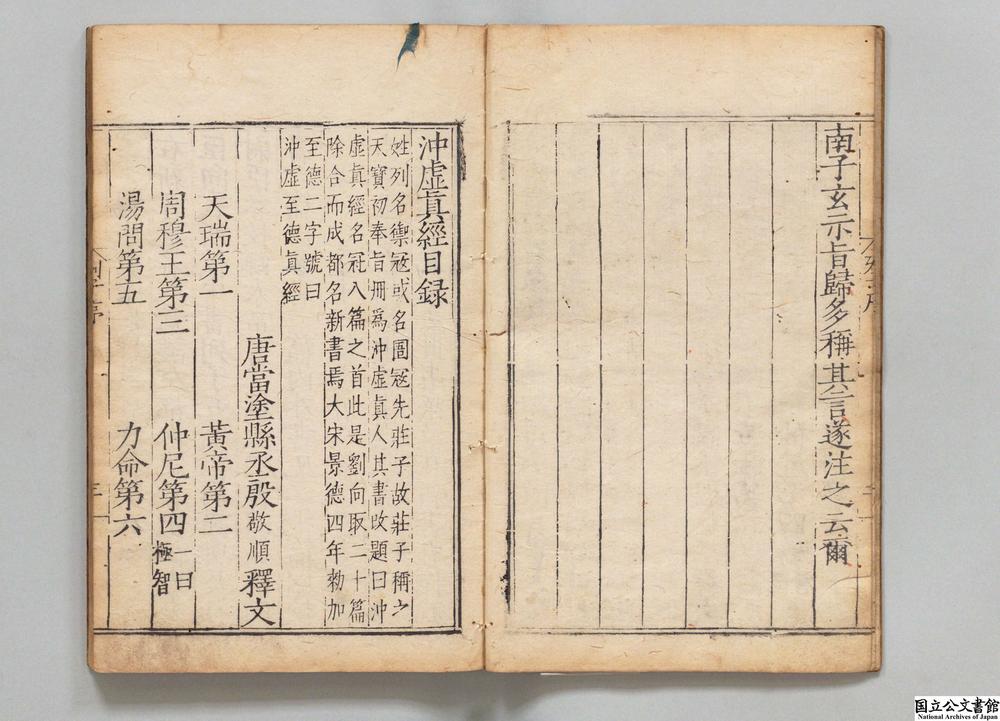 南子玄示旨歸多稱其言遂注之云爾
沖虛眞經目録
姓列名禦冦或名圄冦先莊子故莊子稱之
天寶初奉旨冊爲沖虛眞人其書改題曰沖
虛眞經名冠八篇之首此是劉向取二十篇
除合而成都名新書焉大宋景德四年勑加
至德二字號曰
沖虛至德眞經
唐當塗縣丞殷敬順釋文
天瑞第一 黃帝第二
周穆王第三 仲尼第四 一曰極智
湯問第五 力命第六
国立公文書館
National Archives of Japan